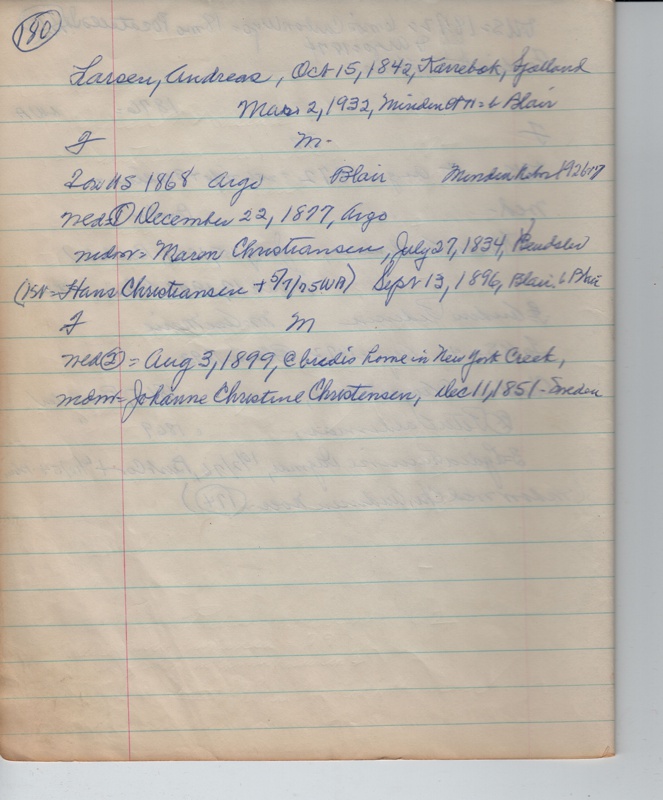 190
Larsen, Andreas, Oct 15, 1842, Karrebæk, Sjælland
Mar 2, 1932, Minden b Blair
F M-
Iow US 1868 Argo Blair Minden Nebr 1926-17
wed ① December 22, 1877, Argo
mdm = Maren Christiansen, July 27, 1834,
(1st = Hans Christiansen + 5/7/75 WA) Sept 13, 1896, Blair, b Blair
F M
wed ② = Aug 3, 1899, @ brides home in New York Creek,
mdm = Johanne Christine Christensen, Dec 11, 1851 - Sweden